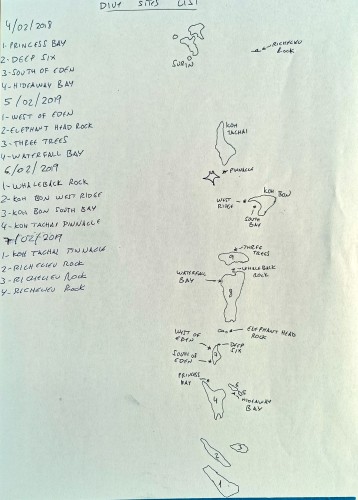 DIVE SITES LIST
4/02/2018
1-PRINCESS BAY
2-DEEP SIX
3-SOUTH OF EDEN
4-HIDEAWAY BAY
5/02/2019
1-WEST OF EDEN
2-ELEPHANT HEAD ROCK
3-THREE TREES
4-WATERFALL BAY
6/02/2019
1-WHALEBACK ROCK
2-KOH BON WEST RIDGE
3-KOH BON SOUTH BAY
4-KOH TACHAI PINNACLE
7/02/2019
1-KOH TACHAI PINNACLE
2-RICHELIEU ROCK
3-RICHELIEU ROCK
4-RICHELIEU ROCK
SURIN
RICHELIEU
ROCK
KOH
TACHAI
PINNACLE
WEST
RIDGE
KOH BON
SOUTH
BAY
THREE
TREES
9
WHALEBACK
ROCK
WATERFALL
BAY
8
ELEPHANT HEAD
ROCK
WEST OF
EDEN
DEEP
SIX
7
SOUTH OF
EDEN
PRINCESS
BAY
4
HIDEAWAY
BAY
2
3
1